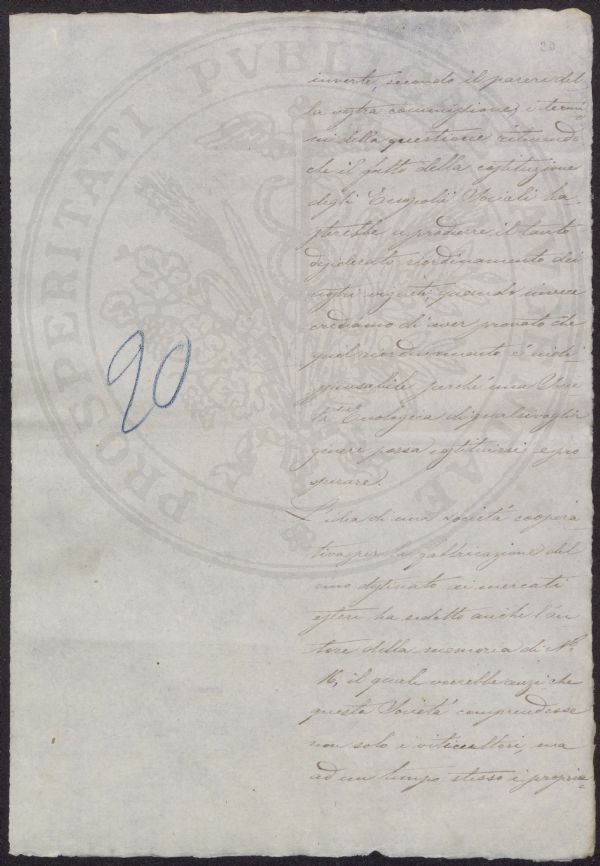 20
inverte, secondo il parere del
la vostra commissione, i termi
ni della questione ritenendo
che il fatto della costituzione
degli Enopolii Sociali ba
sterebbe a produrre il tanto
desiderato riordinamento dei
vigneti, quando invece
crediamo di aver provato che
quel riordinamento è indi
spensabile perchè una Socie
tà Enologica di qualsivoglia
genere possa costituirsi e pro
sperare.
L'idea di una società coopera
tiva per la fabbricazione del
vino destinato ai mercati
esteri ha sedotto anche l'au
tore della memoria di N.º
16, il quale vorrebbe anzi che
questa Società comprendesse
non solo i viticultori ma
ad un tempo stesso i propria=
20
PROSPERITATI PVBLICAE